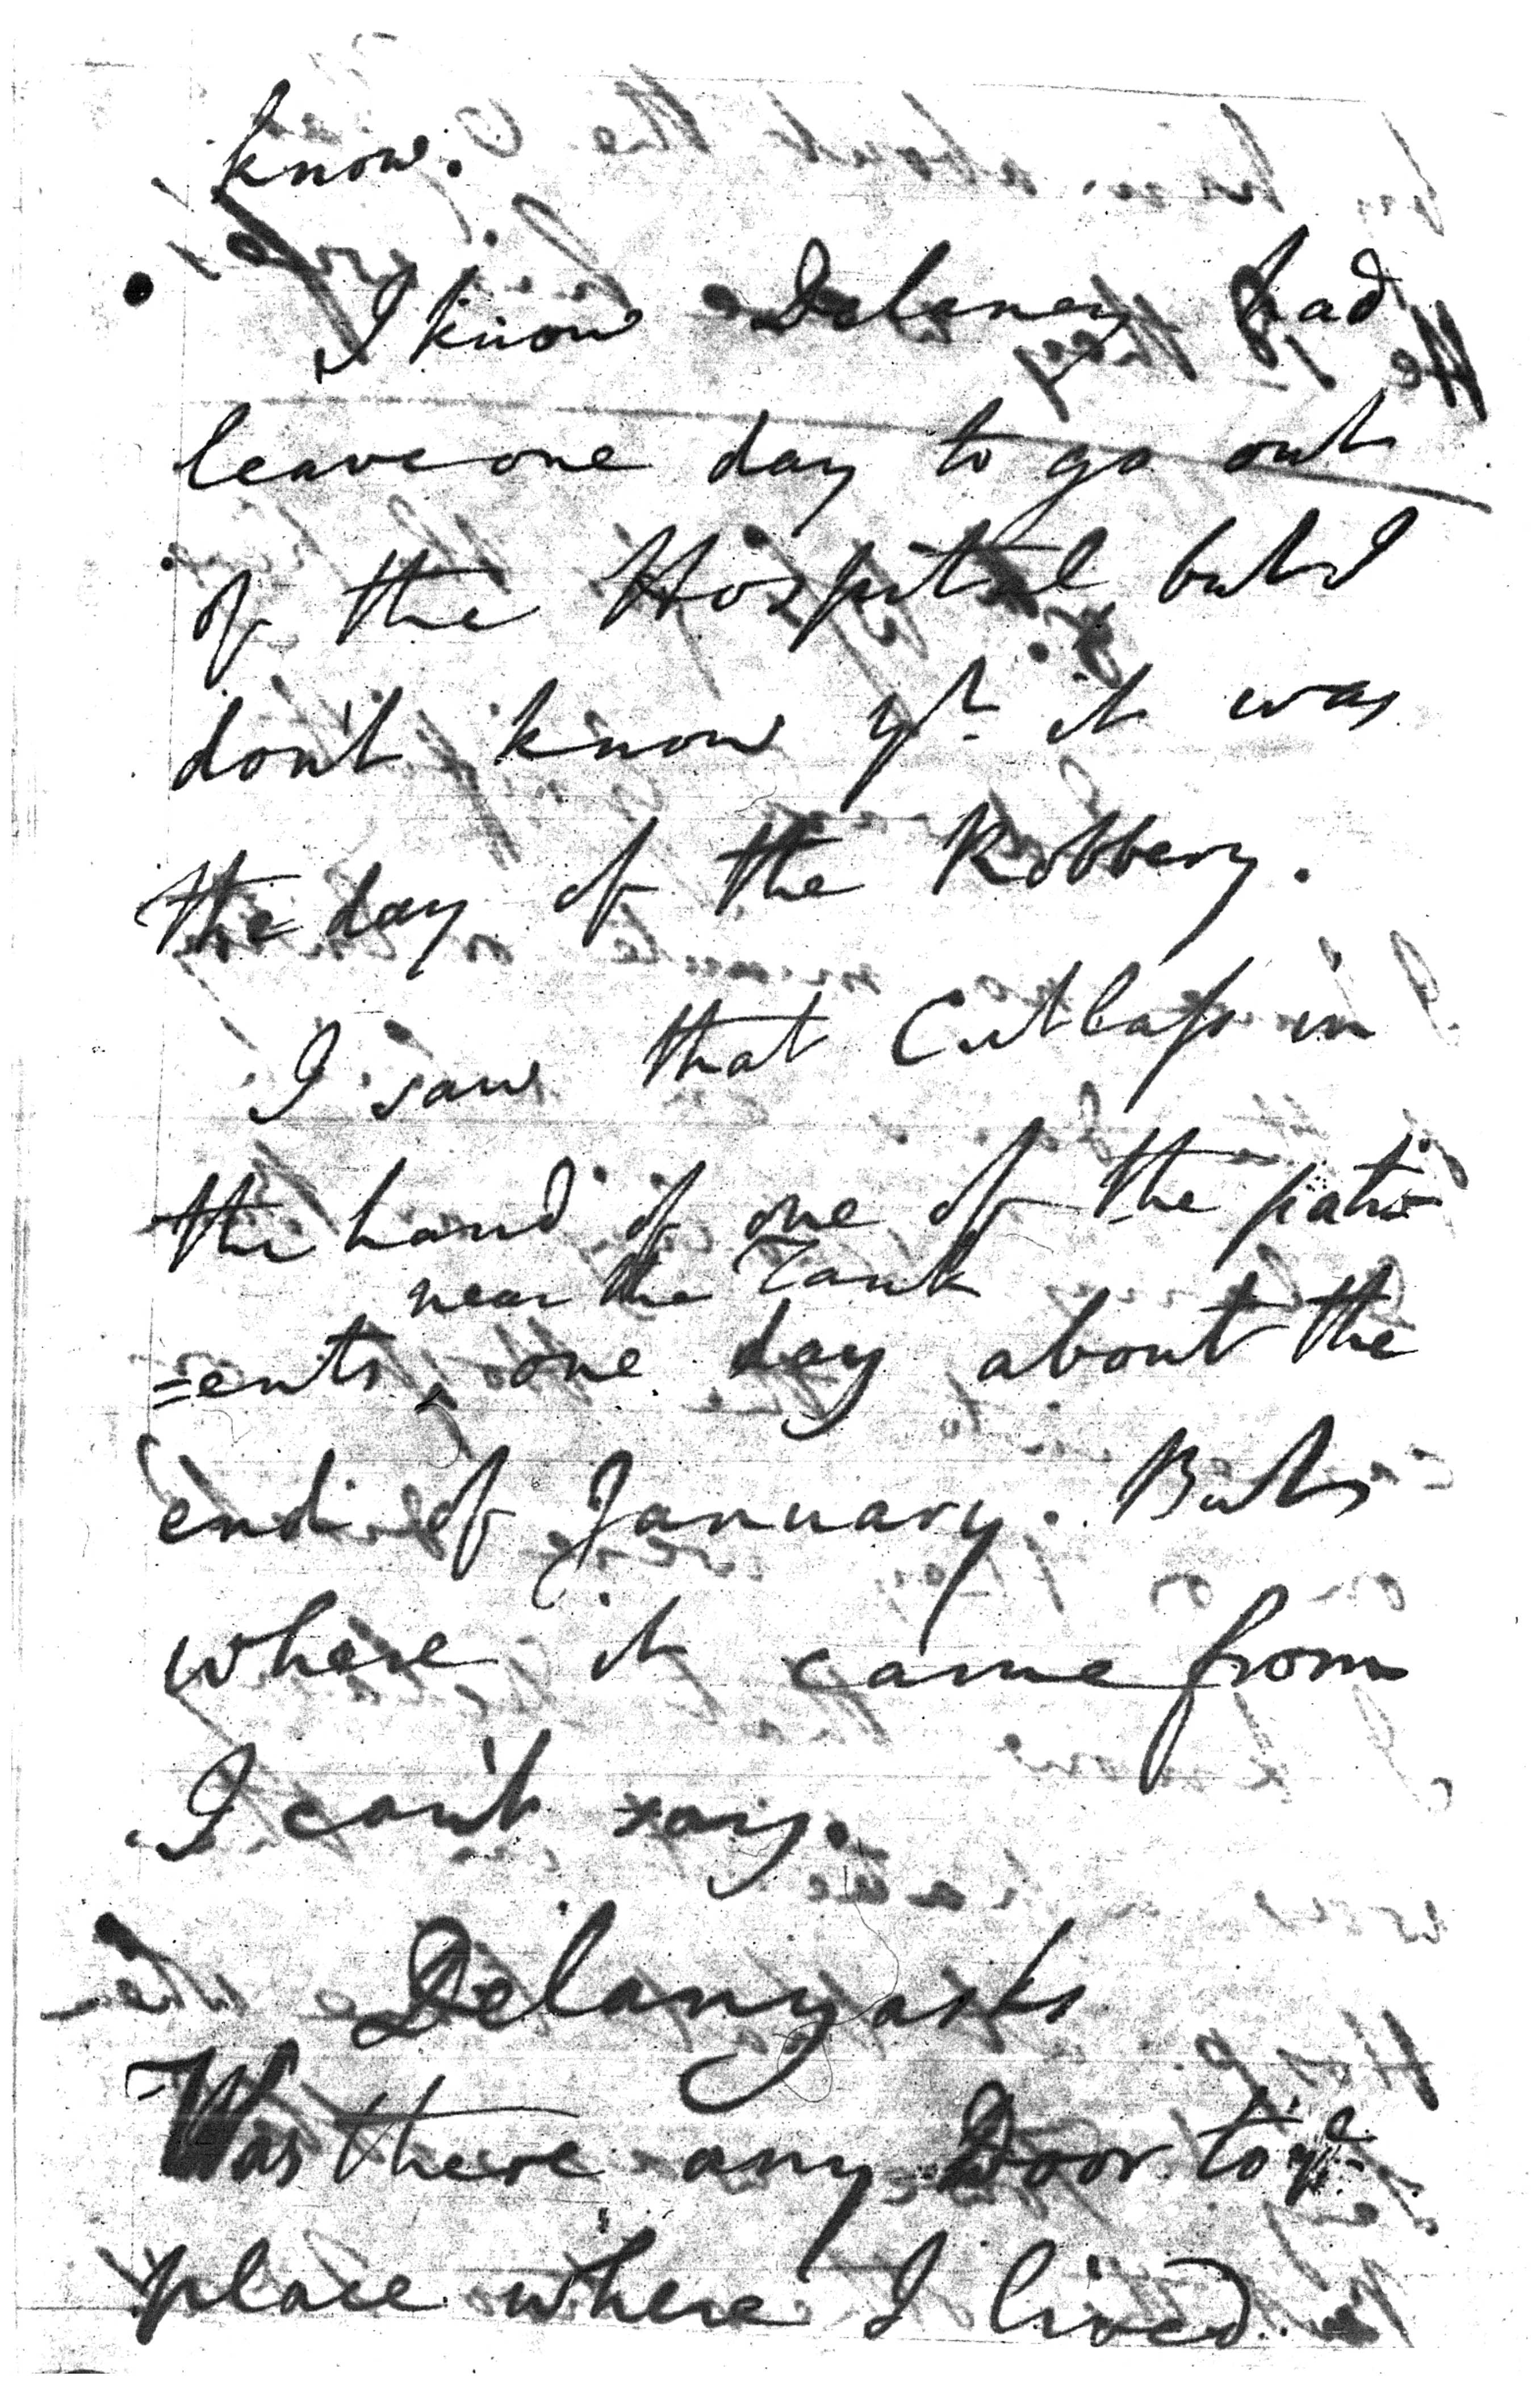 know.
I know Delaney had
leave one day to go out
of the Hospital but I
don't know yt it was
the day of the Robbery.
I saw that Cutlass in
the hand of one of the pati=
near the Tank
=ents, one day about the
end of January. But
where it came from
I can't say.
Delany asks
Was there any Door to ye
place where I lived